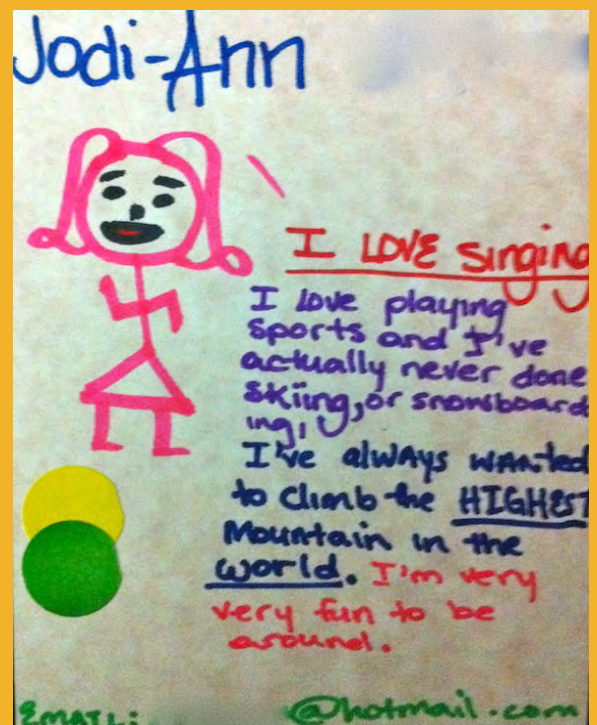 Jodi-Ann
I LOVE singing
I love playing
sports and I've
actually never done
skiing, or snowboard
ing,
I've always wanted
to climb the HIGHEST
Mountain in the
world. I'm very
very fun to be
around.
EMAIL: @hotmail.com